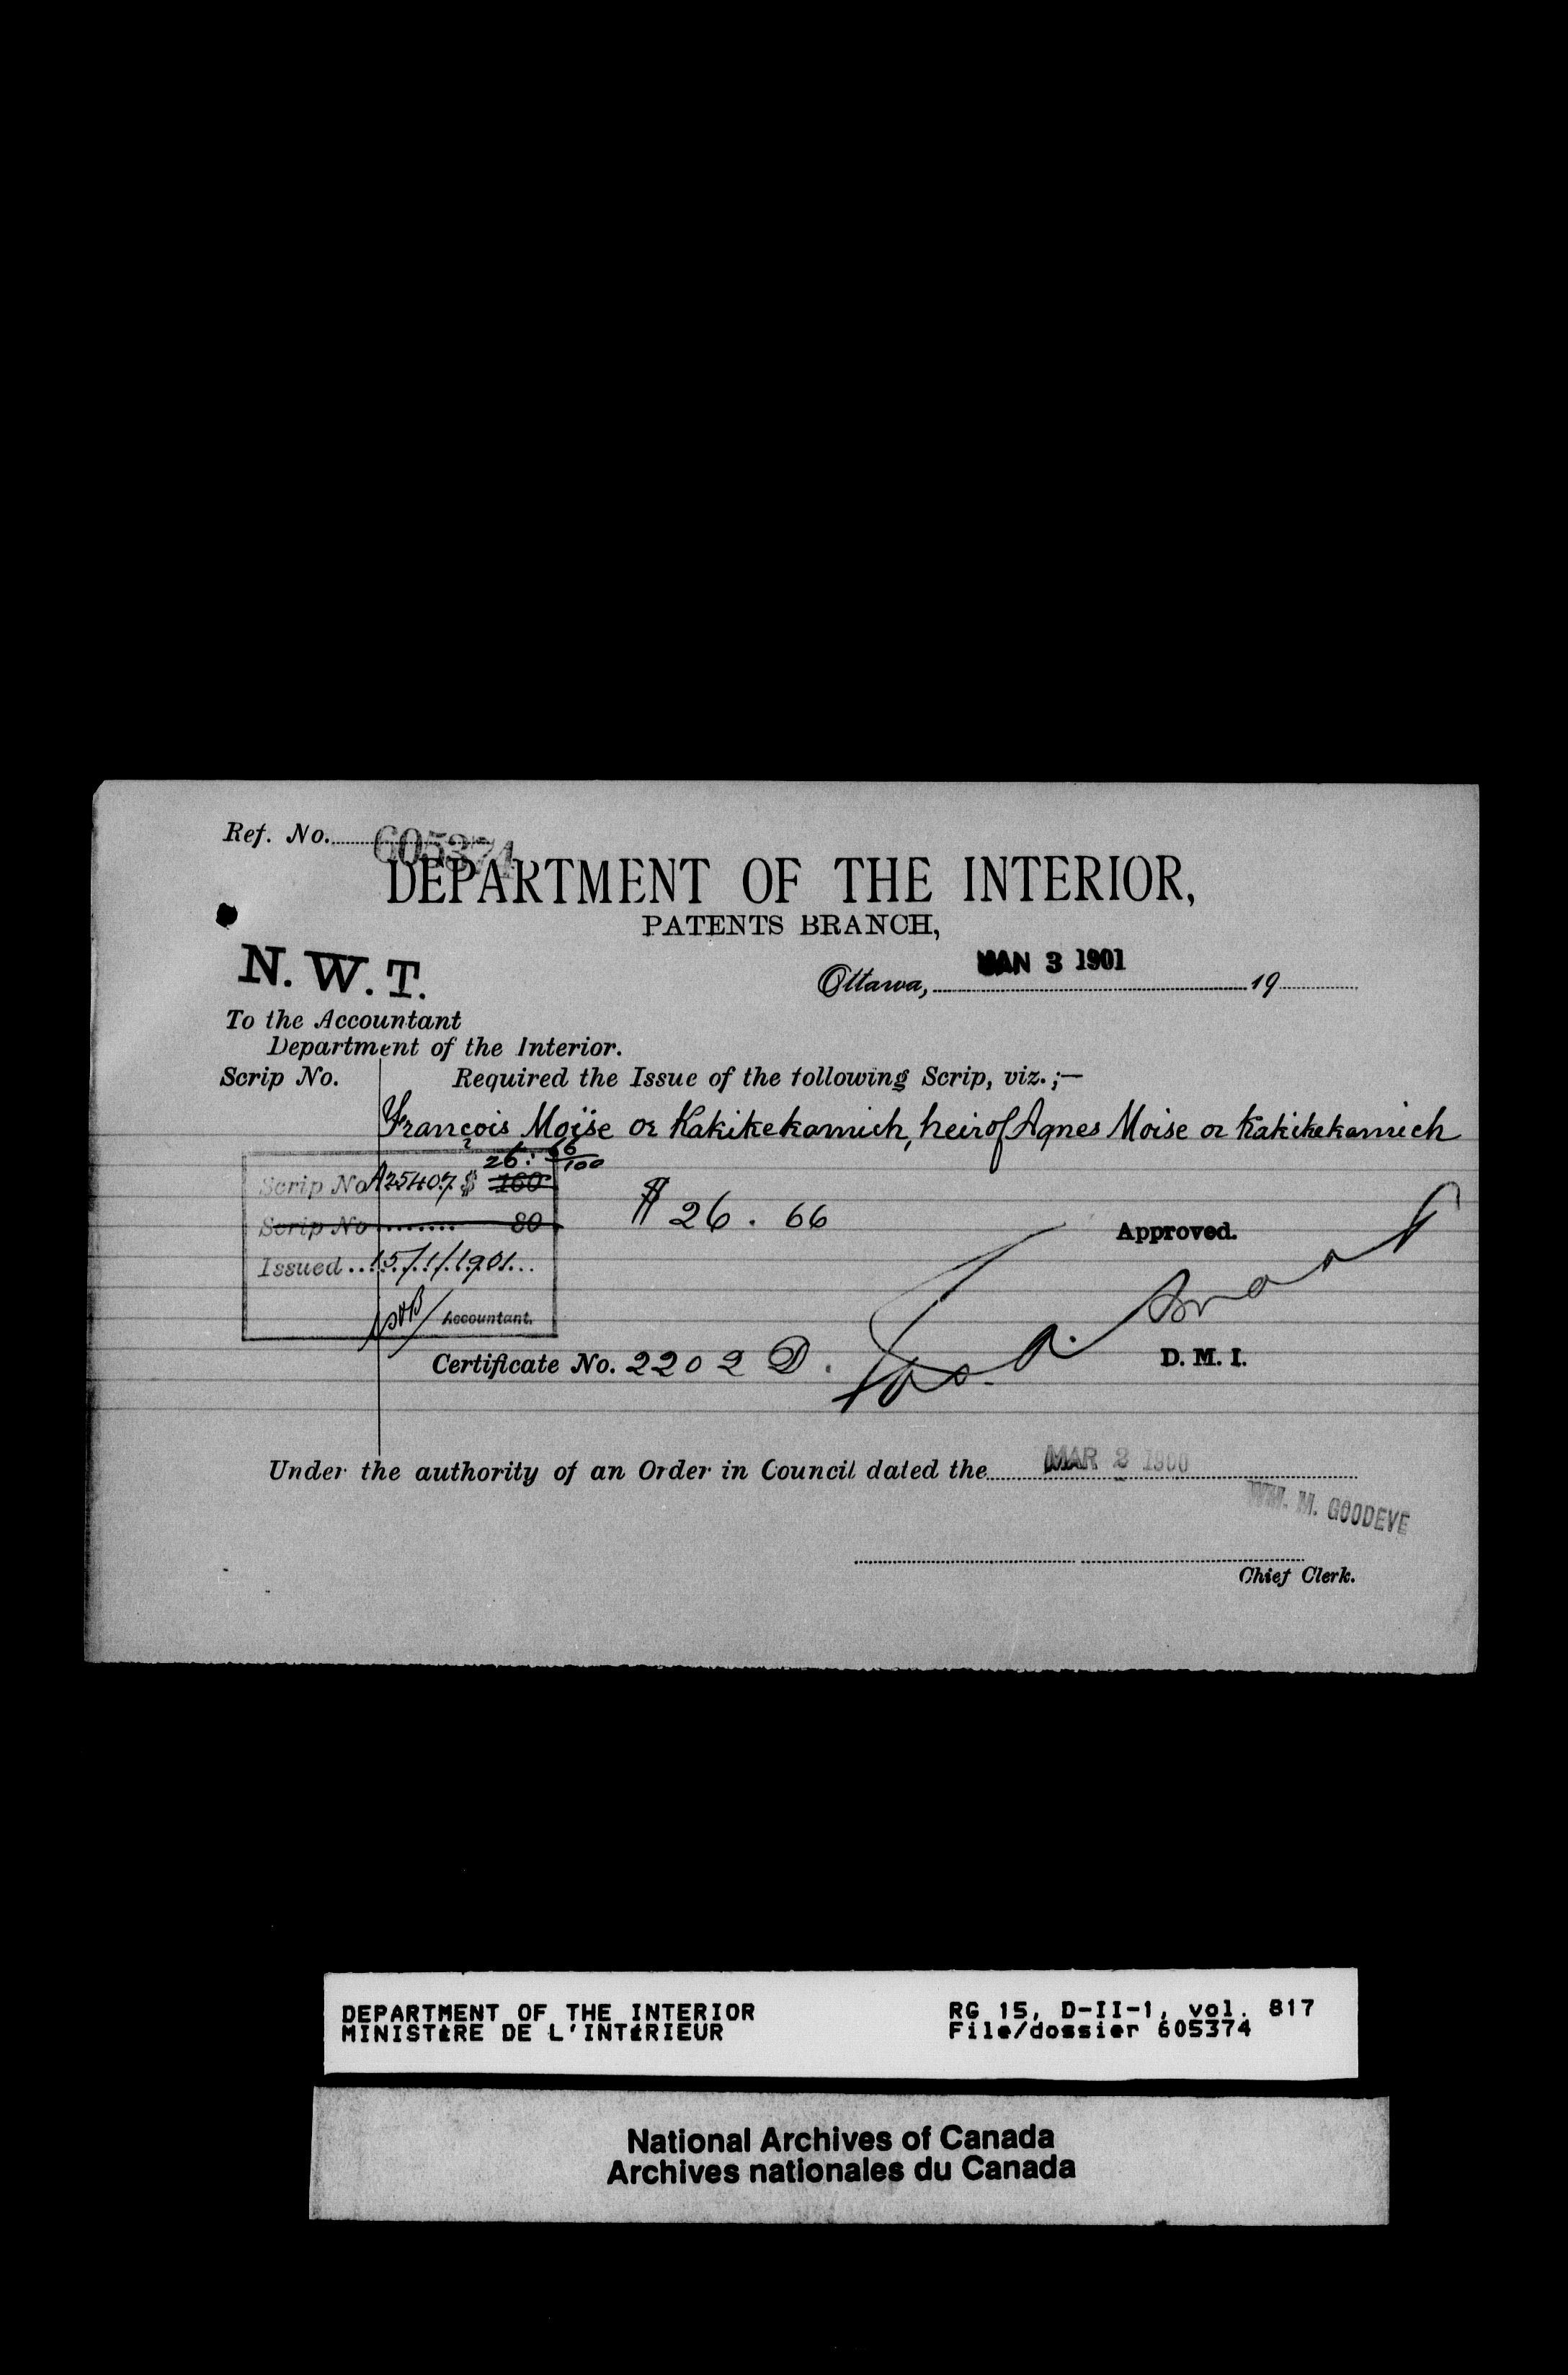 Ref. No. 605374
DEPARTMENT OF THE INTERIOR,
PATENTS BRANCH,
N. W. T.
Ottawa, JAN 3 1901 19
To the Accountant
Department of the Interior.
Scrip No. Required the Issue of the following Scrip, viz.;—
François Moïse or Kakikekamich, heir of Agnes Moise or Kakikekamich
26: 66/100
Scrip No A25407 $ 160
Scrip No ........ 80
$ 26.66
Approved.
Issued .. 15/1/1901...
Accountant.
Certificate No. 2202 D.
Jas. A. Smart
D. M. I.
Under the authority of an Order in Council dated the MAR 2 1900
WM. M. GOODEVE
Chief Clerk.
DEPARTMENT OF THE INTERIOR RG 15, D-II-1, vol. 817
MINISTÈRE DE L'INTÉRIEUR File/dossier 605374
National Archives of Canada
Archives nationales du Canada